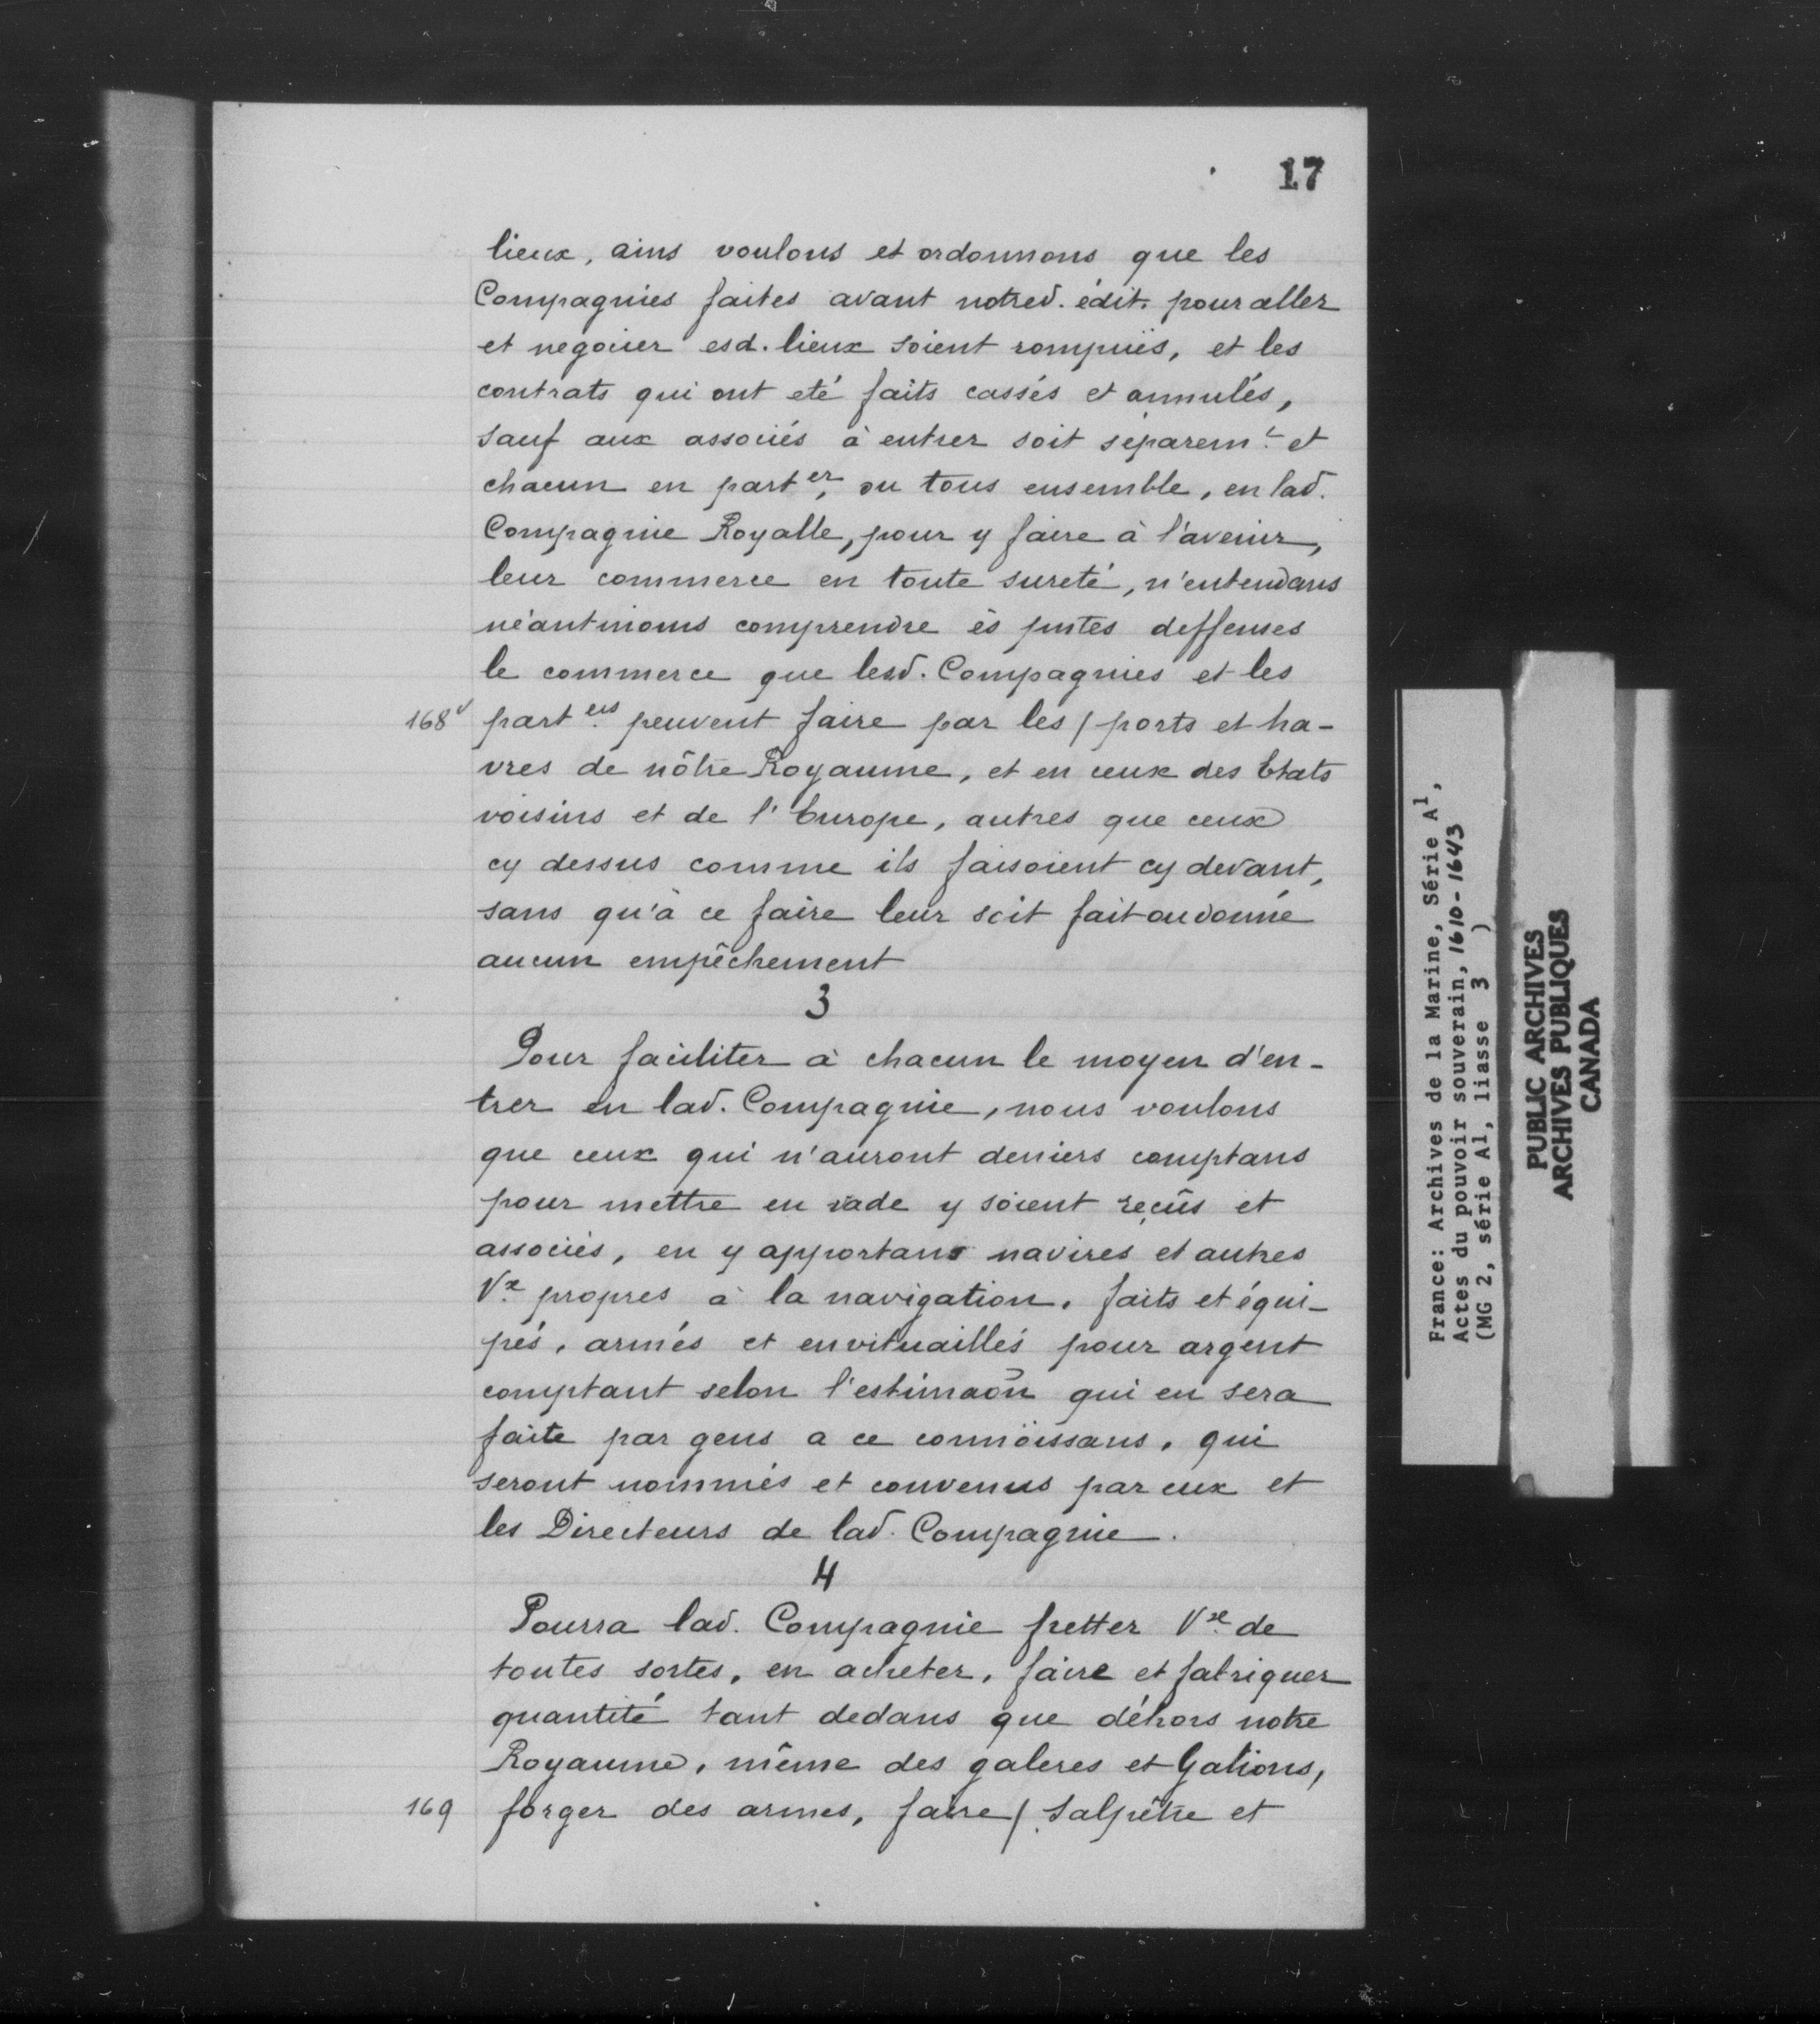 17
lieux, ains voulons et ordonnons que les
Compagnies faites avant notred. édit. pour aller
et negocier esd. lieux soient rompuës, et les
contrats qui ont eté faits cassés et annulés,
sauf aux associés à entrer soit séparemt. et
chacun en parter, ou tous ensemble, en lad.
Compagnie Royalle, pour y faire à l'avenir,
leur commerce en toute sureté, n'entendans
néantmoins comprendre ès pntes deffenses
le commerce que lesd. Compagnies et les
168v parters peuvent faire par les / ports et ha-
vres de nôtre Royaume, et en ceux des Etats
voisins et de l'Europe, autres que ceux
cy dessus comme ils faisoient cy devant,
sans qu'à ce faire leur soit fait ou donné
aucun empêchement
3
Pour faciliter à chacun le moyen d'en-
trer en lad. Compagnie, nous voulons
que ceux qui n'auront deniers comptans
pour mettre en rade y soient reçûs et
associés, en y apportans navires et autres
Vx. propres à la navigation. faits et équi-
pés, armés et envituaillés pour argent
comptant selon l'estimaõn qui en sera
faite par gens a ce connoissans, qui
seront nommés et convenus par eux et
les Directeurs de lad. Compagnie.
4
Pourra lad. Compagnie fretter Vx. de
toutes sortes, en acheter, faire et fabriquer
quantité tant dedans que déhors notre
Royaume, même des galeres et Galions,
169 forger des armes, faire / Salpêtre et
France: Archives de la Marine, Série A1,
Actes du pouvoir souverain, 1610-1643
(MG 2, série A1, liasse 3 )
PUBLIC ARCHIVES
ARCHIVES PUBLIQUES
CANADA